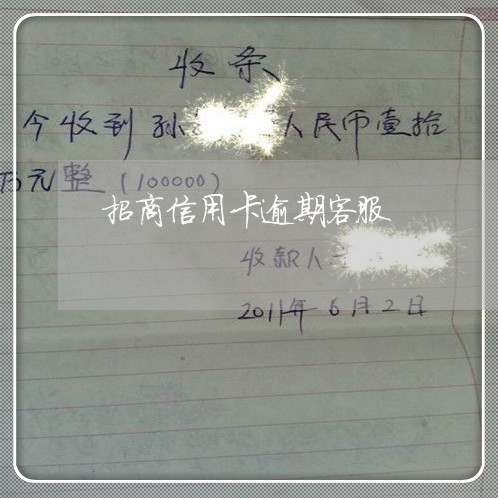 收条
今收到孙 人民币壹拾
万元整(100000)
招商信用卡逾期客服
收款人
2011年6月2日